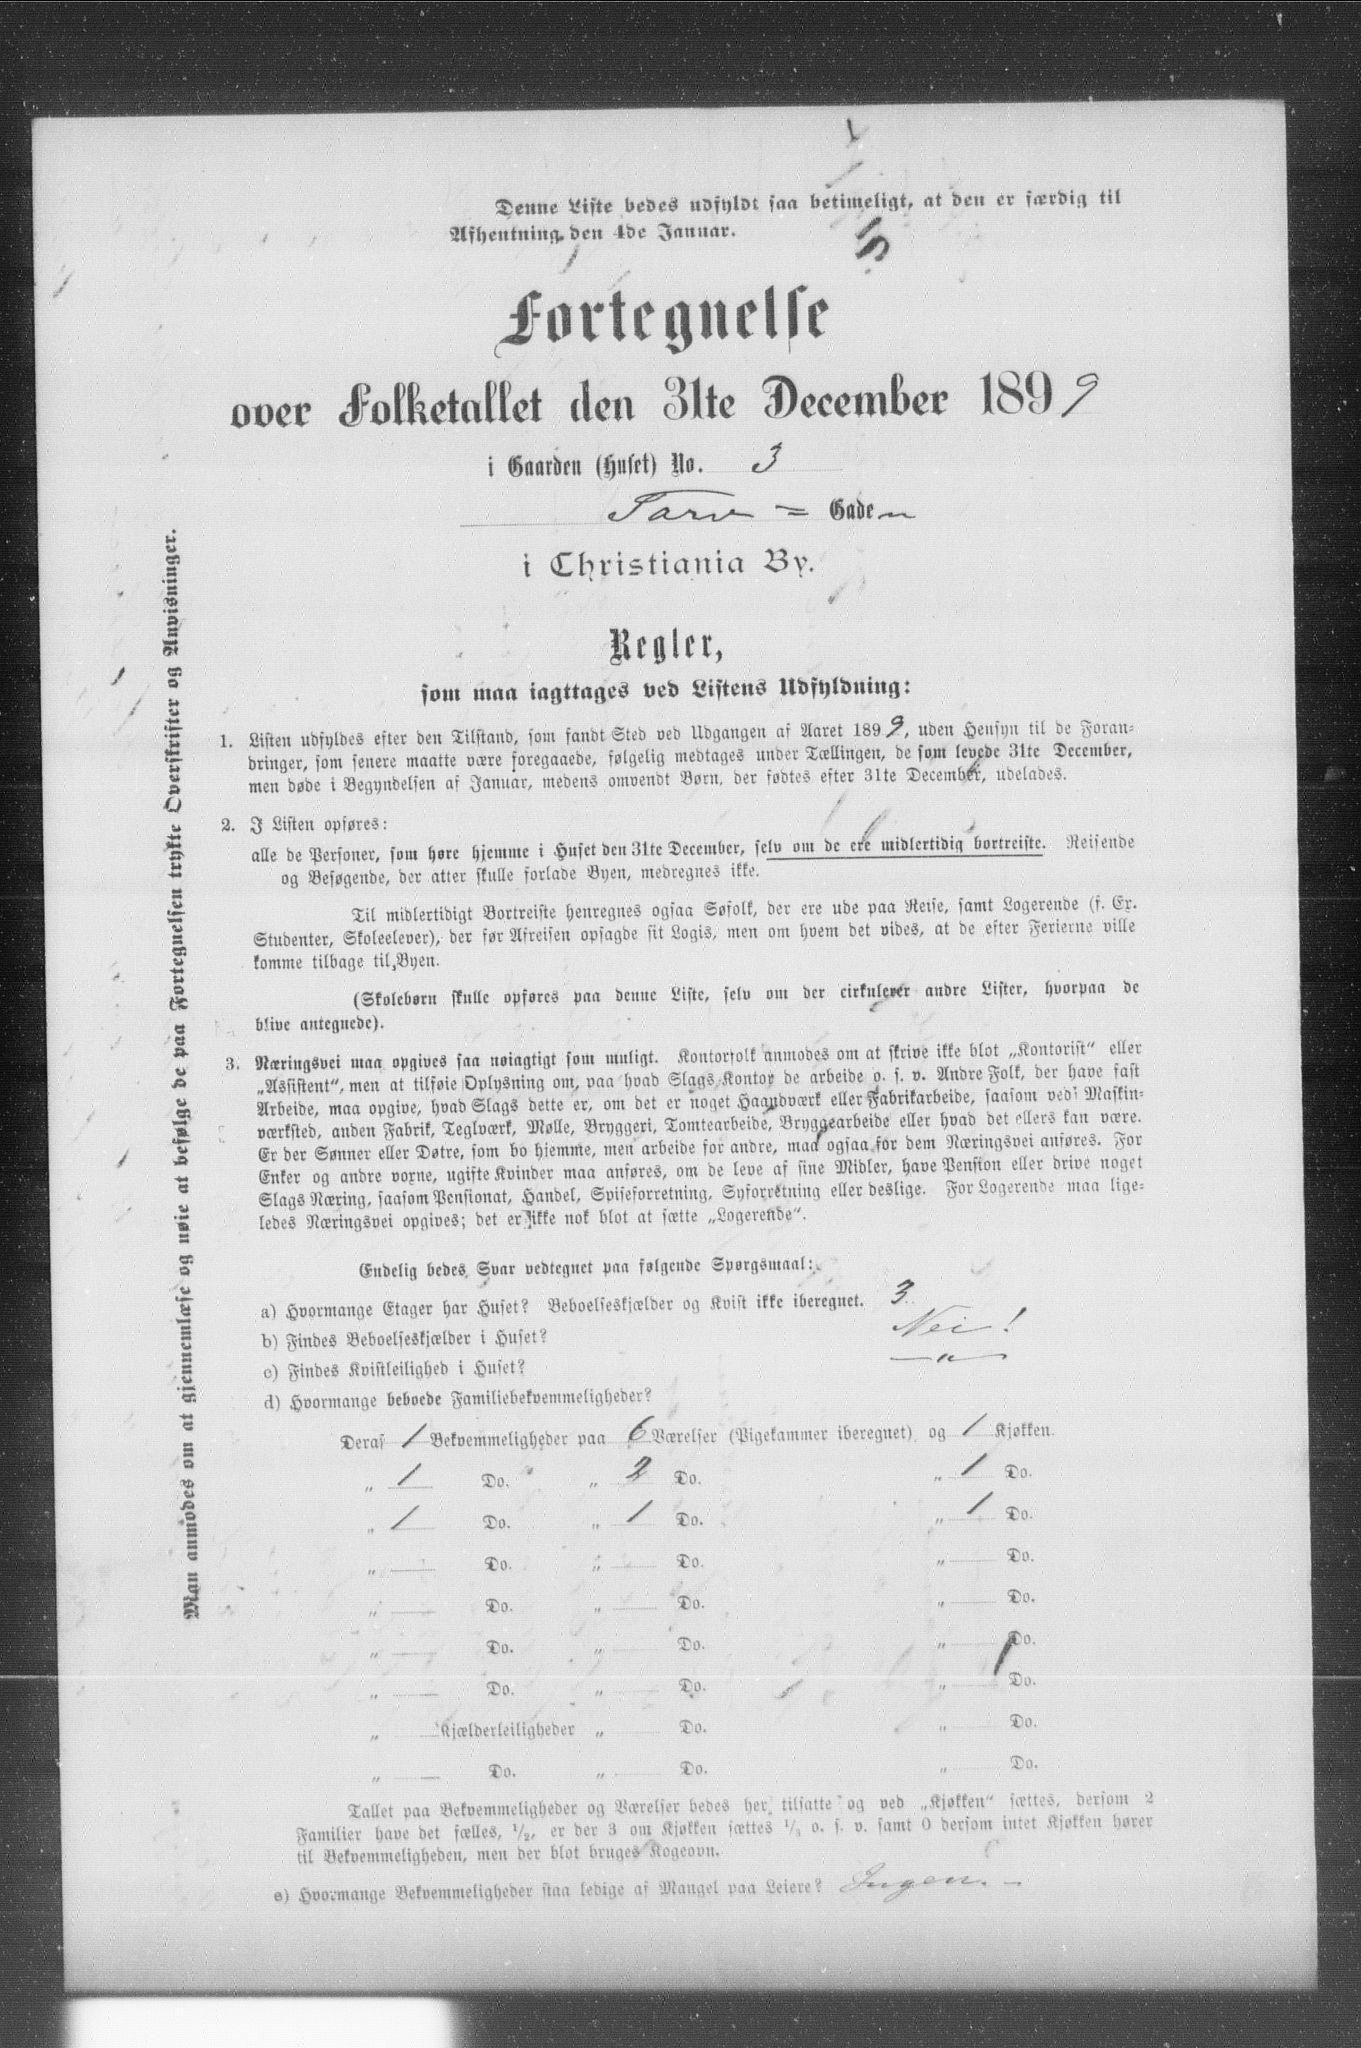 Denne Liste bedes udfyldt saa betimeligt, at den er færdig til
Afhentning den 4de Januar.
Fortegnelse
over Folketallet den 31te December 1899
i Gaarden (Huset) No. 3
= Gaden
i Christiania By.
Regler,
som maa iagttages ved Listens Udfyldning:
1. Listen udfyldes efter den Tilstand, som fandt Sted ved Udgangen af Aaret 1899, uden Hensyn til de Foran-
dringer, som senere maatte være foregaaede, følgelig medtages under Tællingen, de som levede 31te December,
men døde i Begyndelsen af Januar, medens omvendt Børn, der fødtes efter 31te December, udelades.
2. I Listen opføres:
alle de Personer, som høre hjemme i Huset den 31te December, selv om de ere midlertidig bortreiste. Reisende
og Besøgende, der atter skulle forlade Byen, medregnes ikke.
Til midlertidigt Bortreiste henregnes ogsaa Søfolk, der ere ude paa Reise, samt Logerende (f. Ex.
Studenter, Skoleelever), der før Afreisen opsagde sit Logis, men om hvem det vides, at de efter Ferierne ville
komme tilbage til Byen.
(Skolebørn skulle opføres paa denne Liste, selv om der cirkulerer andre Lister, hvorpaa de
blive antegnede).
3. Næringsvei maa opgives saa nøiagtigt som muligt. Kontorfolk anmodes om at skrive ikke blot „Kontorist“ eller
„Assistent“, men at tilføie Oplysning om, paa hvad Slags Kontor de arbeide o. s. v. Andre Folk, der have fast
Arbeide, maa opgive, hvad Slags dette er, om det er noget Haandværk eller Fabrikarbeide, saasom ved Maskin-
værksted, anden Fabrik, Teglværk, Mølle, Bryggeri, Tomtearbeide, Bryggearbeide eller hvad det ellers kan være.
Er der Sønner eller Døtre, som bo hjemme, men arbeide for andre, maa ogsaa for dem Næringsvei anføres. For
Enker og andre voxne, ugifte Kvinder maa anføres, om de leve af sine Midler, have Pension eller drive noget
Slags Næring, saasom Pensionat, Handel, Spiseforretning, Syforretning eller deslige. For Logerende maa lige-
ledes Næringsvei opgives; det er ikke nok blot at sætte „Logerende“.
Endelig bedes Svar vedtegnet paa følgende Spørgsmaal:
a) Hvormange Etager har Huset? Beboelseskjælder og Kvist ikke iberegnet. 3
b) Findes Beboelseskjælder i Huset? Nei!
c) Findes Kvistleilighed i Huset? — „ —
d) Hvormange beboede Familiebekvemmeligheder?
Deraf 1 Bekvemmeligheder paa 6 Værelser (Pigekammer iberegnet) og 1 Kjøkken.
„ 1 Do. „ 2 Do. „ 1 Do.
„ 1 Do. „ 1 Do. „ 1 Do.
„ Do. „ Do. „ Do.
„ Do. „ Do. „ Do.
„ Do. „ Do. „ Do.
„ Do. „ Do. „ Do.
„ Kjælderleiligheder „ Do. „ Do.
„ Do. „ Do. „ Do.
Tallet paa Bekvemmeligheder og Værelser bedes her tilsatte og ved „Kjøkken“ sættes, dersom 2
Familier have det fælles, 1/2, er der 3 om Kjøkken sættes 1/3 o. s. v. samt 0 dersom intet Kjøkken hører
til Bekvemmeligheden, men der blot bruges Kogeovn.
e) Hvormange Bekvemmeligheder staa ledige af Mangel paa Leiere? Ingen. –
Man anmodes om at gjennemlæse og nøie at befølge de paa Fortegnelsen trykte Overskrifter og Anvisninger.